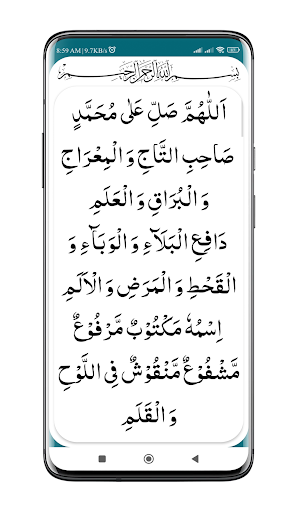 8:59 AM | 9.7KB/s
بسم الله الرحمن الرحيم
اَللّٰهُمَّ صَلِّ عَلٰى مُحَمَّدٍ
صَاحِبِ التَّاجِ وَ الْمِعْرَاجِ
وَ الْبُرَاقِ وَ الْعَلَمِ
دَافِعِ الْبَلَآءِ وَ الْوَبَآءِ وَ
الْقَحْطِ وَ الْمَرَضِ وَ الْاَلَمِ
اِسْمُهٗ مَكْتُوْبٌ مَّرْفُوْعٌ
مَّشْفُوْعٌ مَّنْقُوْشٌ فِى اللَّوْحِ
وَ الْقَلَمِ